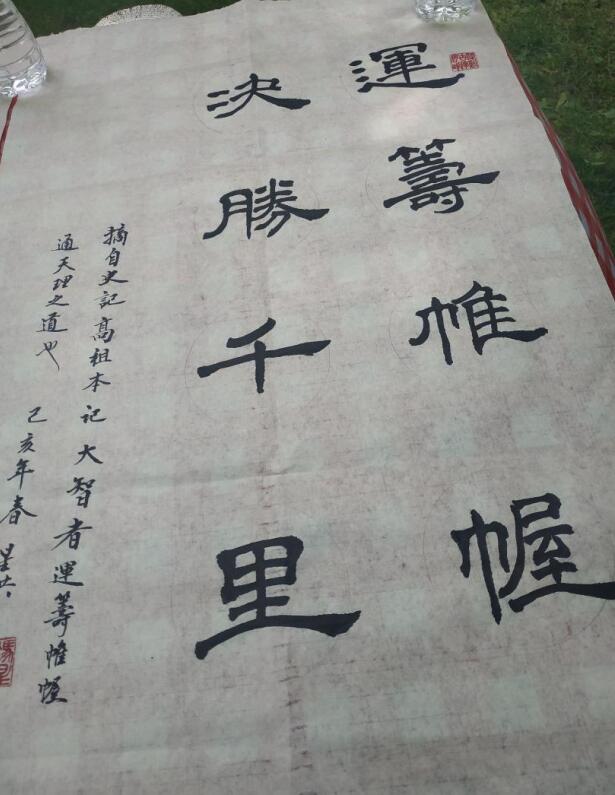 運籌帷幄
決勝千里
摘自史記高祖本记大智者運籌帷幄
通天理之道也
己亥年春星